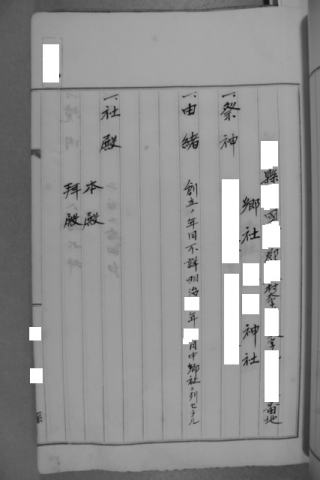 縣 郡 村 字 番地
郷社 神社
一、祭神
一、由緒
創立ノ年月不詳明治 年 月中郷社ニ列セラル
一、社殿
本殿
拝殿